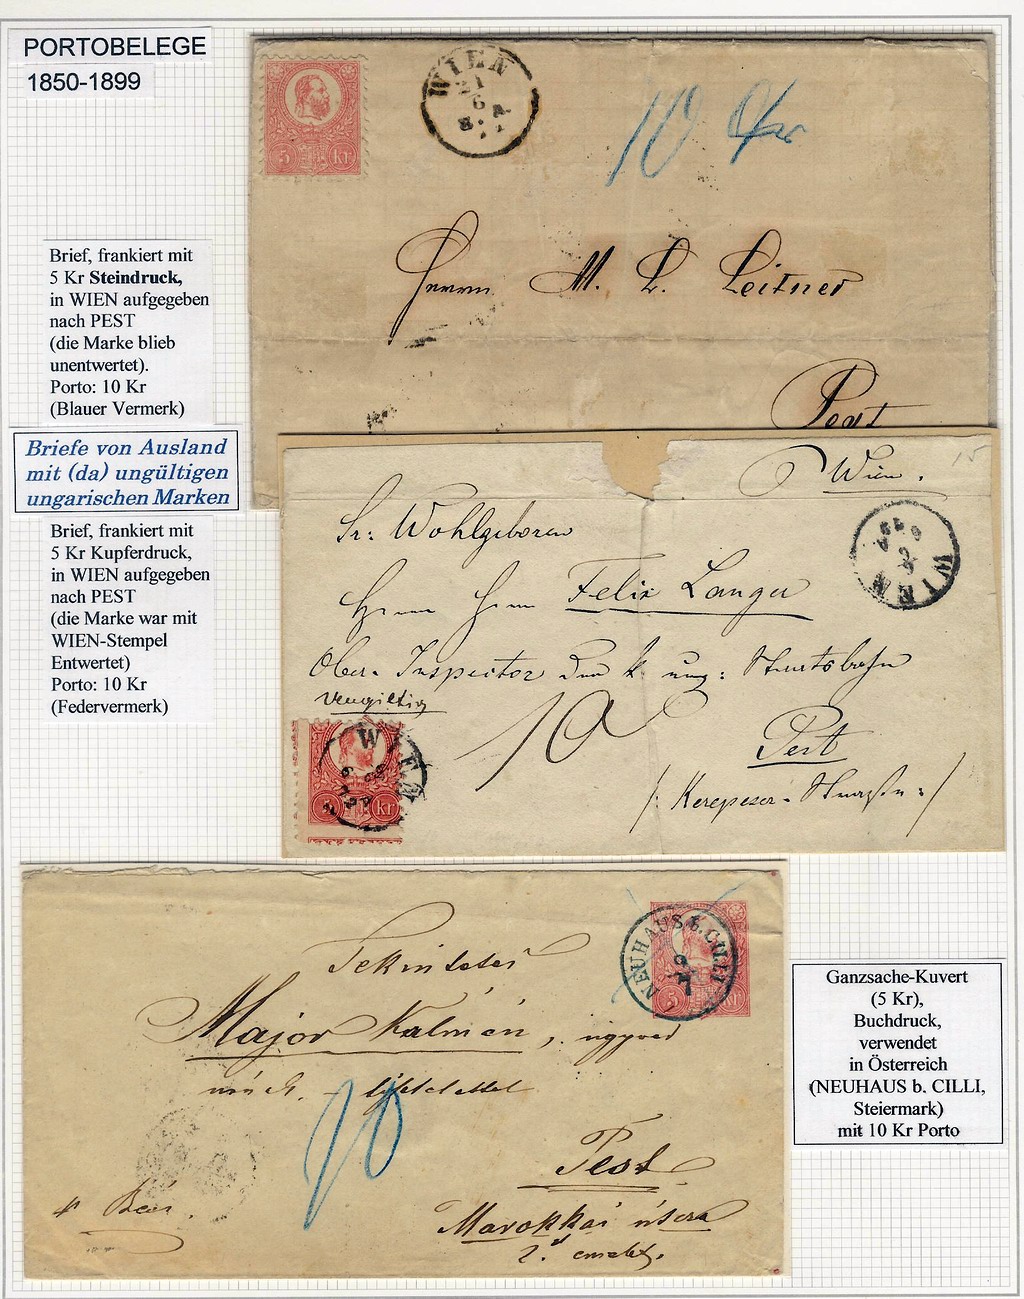 PORTOBELEGE
1850-1899
WIEN
21
6
5 kr
10 Xkr
Herrn M. L. Leitner
Pest
Brief, frankiert mit
5 Kr Steindruck,
in WIEN aufgegeben
nach PEST
(die Marke blieb
unentwertet).
Porto: 10 Kr
(Blauer Vermerk)
Briefe von Ausland
mit (da) ungültigen
ungarischen Marken
Brief, frankiert mit
5 Kr Kupferdruck,
in WIEN aufgegeben
nach PEST
(die Marke war mit
WIEN-Stempel
Entwertet)
Porto: 10 Kr
(Federvermerk)
Wien.
15
WIEN
Sr: Wohlgeboren
Herrn Herrn Felix Langer
Ober-Inspector der k. ung: Staatsbahn
ungiltig
10
Pest
/: Kerepeser-Strasse :/
WIEN
kr
NEUHAUS b. CILLI
9
7
5 kr
Tekintetes
Major Kálmán, ügyvéd
10
Pest
Marokkai útcza
2.
Bécs.
Ganzsache-Kuvert
(5 Kr),
Buchdruck,
verwendet
in Österreich
(NEUHAUS b. CILLI,
Steiermark)
mit 10 Kr Porto